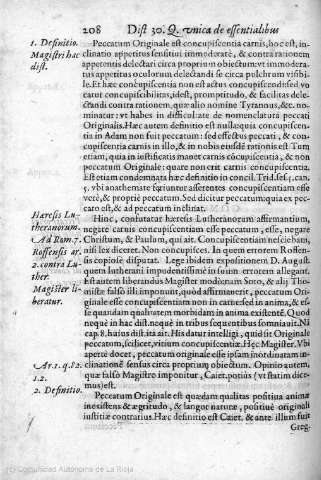 208 Dist 30. Q. vnica de essentialibus
1. Definitio.
Magistri hac
dist.
Peccatum Originale est concupiscentia carnis, hoc est, in-
clinatio appetitus sensitiui immoderatè, & contra rationem
appetentis delectari circa proprium obiectum: vt immodera-
tus appetitus oculorum delectandi se circa pulchrum visibi-
le. Et hæc concupiscentia non est actus concupiscendi sed vo
catur concupiscibilitas, idest, promptitudo, & facilitas dele-
ctandi contra rationem, quæ alio nomine Tyrannus, &c. no-
minatur: vt habes in difficultate de nomenclatura peccati
Originalis. Hæc autem definitio est nulla: quia concupiscen-
tia in Adam non fuit peccatum: sed effectus peccati, & con-
cupiscentia carnis in illo, & in nobis eiusdē rationis est Tum
etiam, quia in iustificatis manet carnis cōcupiscentia, & non
peccatum Originale: quare non erit carnis concupiscentia.
Est etiam condemnata hæc definitio in concil. Trid. ses. 5. can.
5. vbi anathemate feriuntur asserentes concupiscentiam esse
verè, & propriè peccatum. Sed dicitur peccatum: quia ex pec-
cato est, & ad peccatum inclinat.
Hæresis Lu-
theranorum.
Ad Rom. 7.
Roffensis ar.
2. contra Lu-
ther.
Magister li-
beratur.
Hinc, confutatur hæresis Lutheranorum affirmantium,
negare carnis concupiscentiam esse peccatum, esse, negare
Christum, & Paulum, qui ait. Concupiscentiam nesciebam,
nisi lex diceret. Non concupisces. In quem errorem Roffen-
sis copiosè disputat. Lege ibidem expositionem D. August.
quem lutherani impudentissimè in suum errorem allegant.
Est autem liberandus Magister modo: nam Soto, & alij Tho-
mistæ falsò illi imponunt, quòd affirmauerit, peccatum Ori-
ginale esse concupiscentiam non in carne sed in anima, & es-
se quandam qualitatem morbidam in anima existentē. Quod
neque in hac dist. neque in tribus sequentibus somniauit. Ni
cap. 8. huius dist. ita ait. His datur intelligi, quid sit Originale
peccatum, scilicet, vitium concupiscentiæ. Hęc Magister. Vbi
apertè docet, peccatum originale esse ipsam inordinatam in-
Ar. 1. q. 82.
1. 2.
clinationē sensus circa proprium obiectum. Opinio autem,
quæ falsò Magistro imponitur, Caiet. potiùs (vt statim dice-
mus) est.
2. Definitio.
Peccatum Originale est quædam qualitas positiua animæ
inexistens & ægritudo, & langor naturæ, positiuè originali
iustitiæ contrarius. Hæc definitio est Caiet. & ante illum fuit
Greg.
(c) Comunidad Autónoma de La Rioja